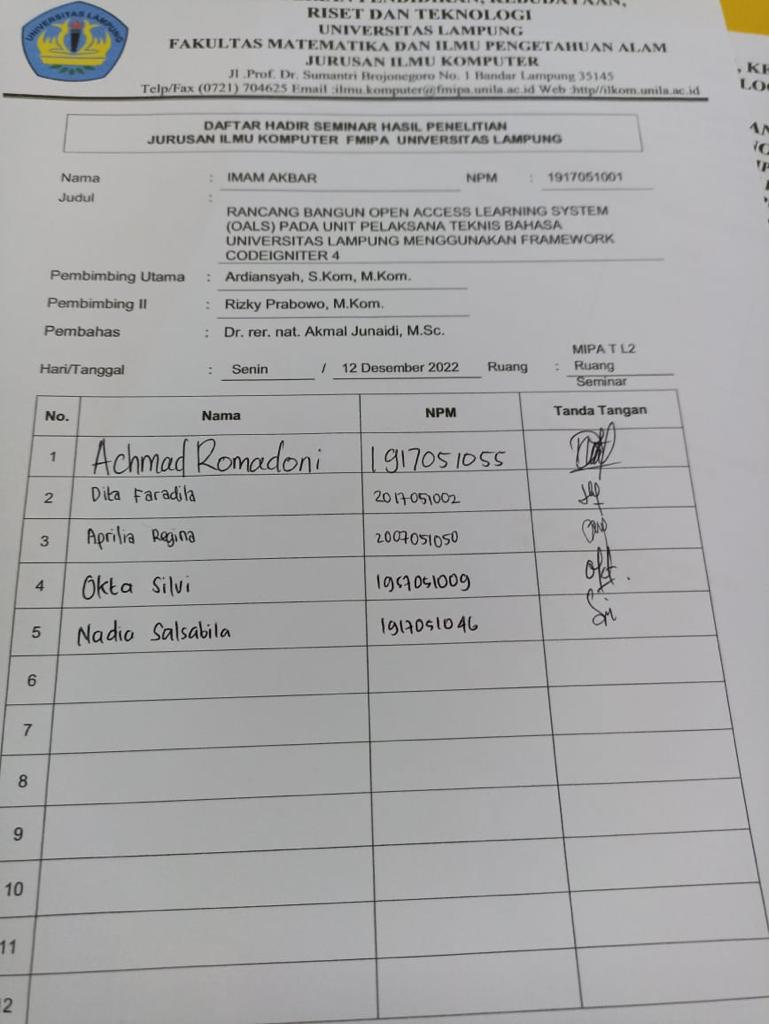 RISET DAN TEKNOLOGI
UNIVERSITAS LAMPUNG
FAKULTAS MATEMATIKA DAN ILMU PENGETAHUAN ALAM
JURUSAN ILMU KOMPUTER
Jl .Prof. Dr. Sumantri Brojonegoro No. 1 Bandar Lampung 35145
Telp/Fax (0721) 704625 Email :ilmu.komputer@fmipa.unila.ac.id Web :http//ilkom.unila.ac.id
UNIVERSITAS LAMPUNG
DAFTAR HADIR SEMINAR HASIL PENELITIAN
JURUSAN ILMU KOMPUTER FMIPA UNIVERSITAS LAMPUNG
Nama : IMAM AKBAR NPM : 1917051001
Judul :
RANCANG BANGUN OPEN ACCESS LEARNING SYSTEM
(OALS) PADA UNIT PELAKSANA TEKNIS BAHASA
UNIVERSITAS LAMPUNG MENGGUNAKAN FRAMEWORK
CODEIGNITER 4
Pembimbing Utama : Ardiansyah, S.Kom, M.Kom.
Pembimbing II : Rizky Prabowo, M.Kom.
Pembahas : Dr. rer. nat. Akmal Junaidi, M.Sc.
Hari/Tanggal : Senin / 12 Desember 2022 Ruang : MIPA T L2
Ruang
Seminar
No. Nama NPM Tanda Tangan
1 Achmad Romadoni 1917051055
2 Dita Faradila 2017051002
3 Aprilia Regina 2007051050
4 Okta Silvi 1957051009
5 Nadia Salsabila 1917051046
6
7
8
9
10
11
12